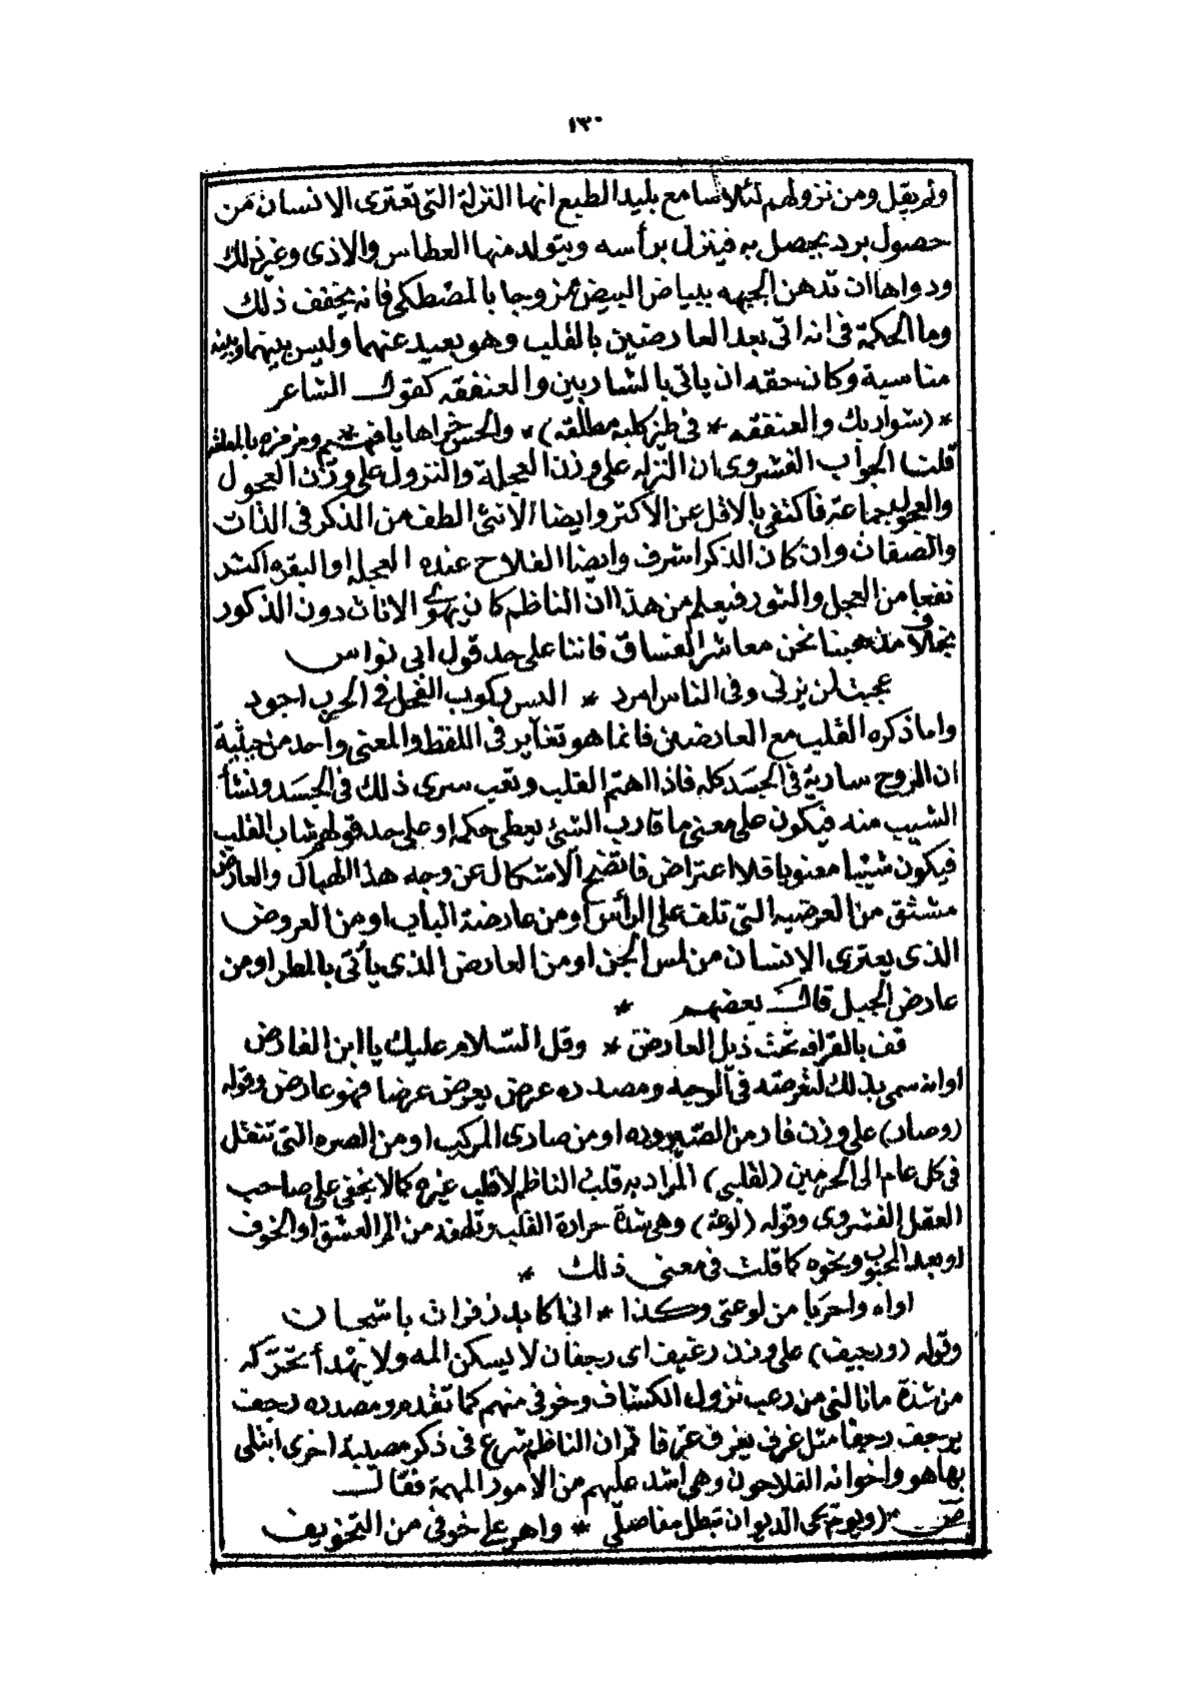 ١٣٠
ولم يقل ومن نزولهم لئلا سامع بليد الطبع انها النزلة التى تعترى الانسان من
حصول برد يحصل به فينزل برأسه ويتولد منها العطاس والاذى وغير ذلك
ودواها ان تدهن الجبهه ببياض البيض ممزوجا بالمصطكى فانه يخفف ذلك
وما الحكمة فى انه اتى بعد العارضين بالقلب وهو بعيد عنهما وليس بينهما وبينه
مناسبة وكان حقه ان ياتى بالشاربين والعنفقه كقول الشاعر
* (شواربك والعنفقه * فى طيز كلبه مطلقه) * والحس خراها يا فهيم ومزمزه بالمعلقه
قلت الجواب الفشروى ان النزله على وزن العجلة والنزول على وزن العجول
والعجول جماعة فاكتفى بالاقل عن الاكثر وايضا الانثى الطف من الذكر فى الذات
والصفات وان كان الذكر اشرف وايضا الفلاح عنده العجله او البقره اكثر
نفعا من العجل والثور فيعلم من هذا ان الناظم كان يهوى الاناث دون الذكور
بخلاف مذهبنا نحن معاشر العشاق فاننا على حد قول ابى نواس
عجبت لمن يزنى وفى الناس امرد * اليس ركوب الفحل فى الحرب اجود
واما ذكره القلب مع العارضين فانما هو تغاير فى اللفظ والمعنى واحد من حيثية
ان الروح سارية فى الجسد كله فاذا اهتم القلب وتعب سرى ذلك فى الجسد ونشأ
الشيب منه فيكون على معنى ما قارب الشئ يعطى حكمه او على حد قولهم شاب القلب
فيكون شيبا معنويا فلا اعتراض فاتضح الاشكال عن وجه هذا الهبال والعارض
مشتق من العرضيه التى تلف على الرأس او من عارضة الباب او من العروض
الذى يعترى الانسان من لمس الجن او من العارض الذى يأتى بالمطر او من
عارض الجبل قال بعضهم *
قف بالقرافه تحت ذيل العارض * وقل السلام عليك يا ابن الفارض
او انه سمى بذلك لتعرضه فى الوجه ومصدره عرض يعرض عرضا فهو عارض وقوله
(وصار) على وزن فار من الصيروره او من صارى المركب او من الصره التى تنقل
فى كل عام الى الحرمين (لقلبى) المراد به قلب الناظم لا قلب غيره كما لا يخفى على صاحب
العقل الفشروى وقوله (لوعة) وهى شدة حرارة القلب وتلهفه من الم العشق او الخوف
او بعد المحبوب ونحوه كما قلت فى معنى ذلك *
اواه واحربا من لوعتى وكذا * انى اكابد زفرات باشجان
وقوله (ورجيف) على وزن رغيف اى رجفان لا يسكن المه ولا يهدأ تحركه
من شدة ما نالنى من رعب نزول الكشاف وخوفى منهم كما تقدم ومصدره رجف
يرجف رجفا مثل غرف يغرف غرفا ثم ان الناظم شرع فى ذكر مصيبة اخرى ابتلى
بها هو واخوانه الفلاحون وهى اشد عليهم من الامور المهمة فقال
ص (ويوم يجى الديوان تبطل مفاصلى * واهر على خوفى من التخويف